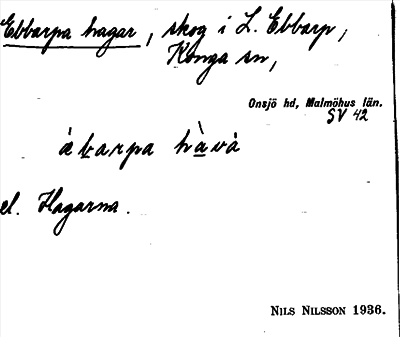 Ebbarpa hagar, skog i L. Ebbarp,
Konga sn,
Onsjö hd, Malmöhus län.
SV 42
àbarpa hàvà
el. Hagarna.
NILS NILSSON 1936.